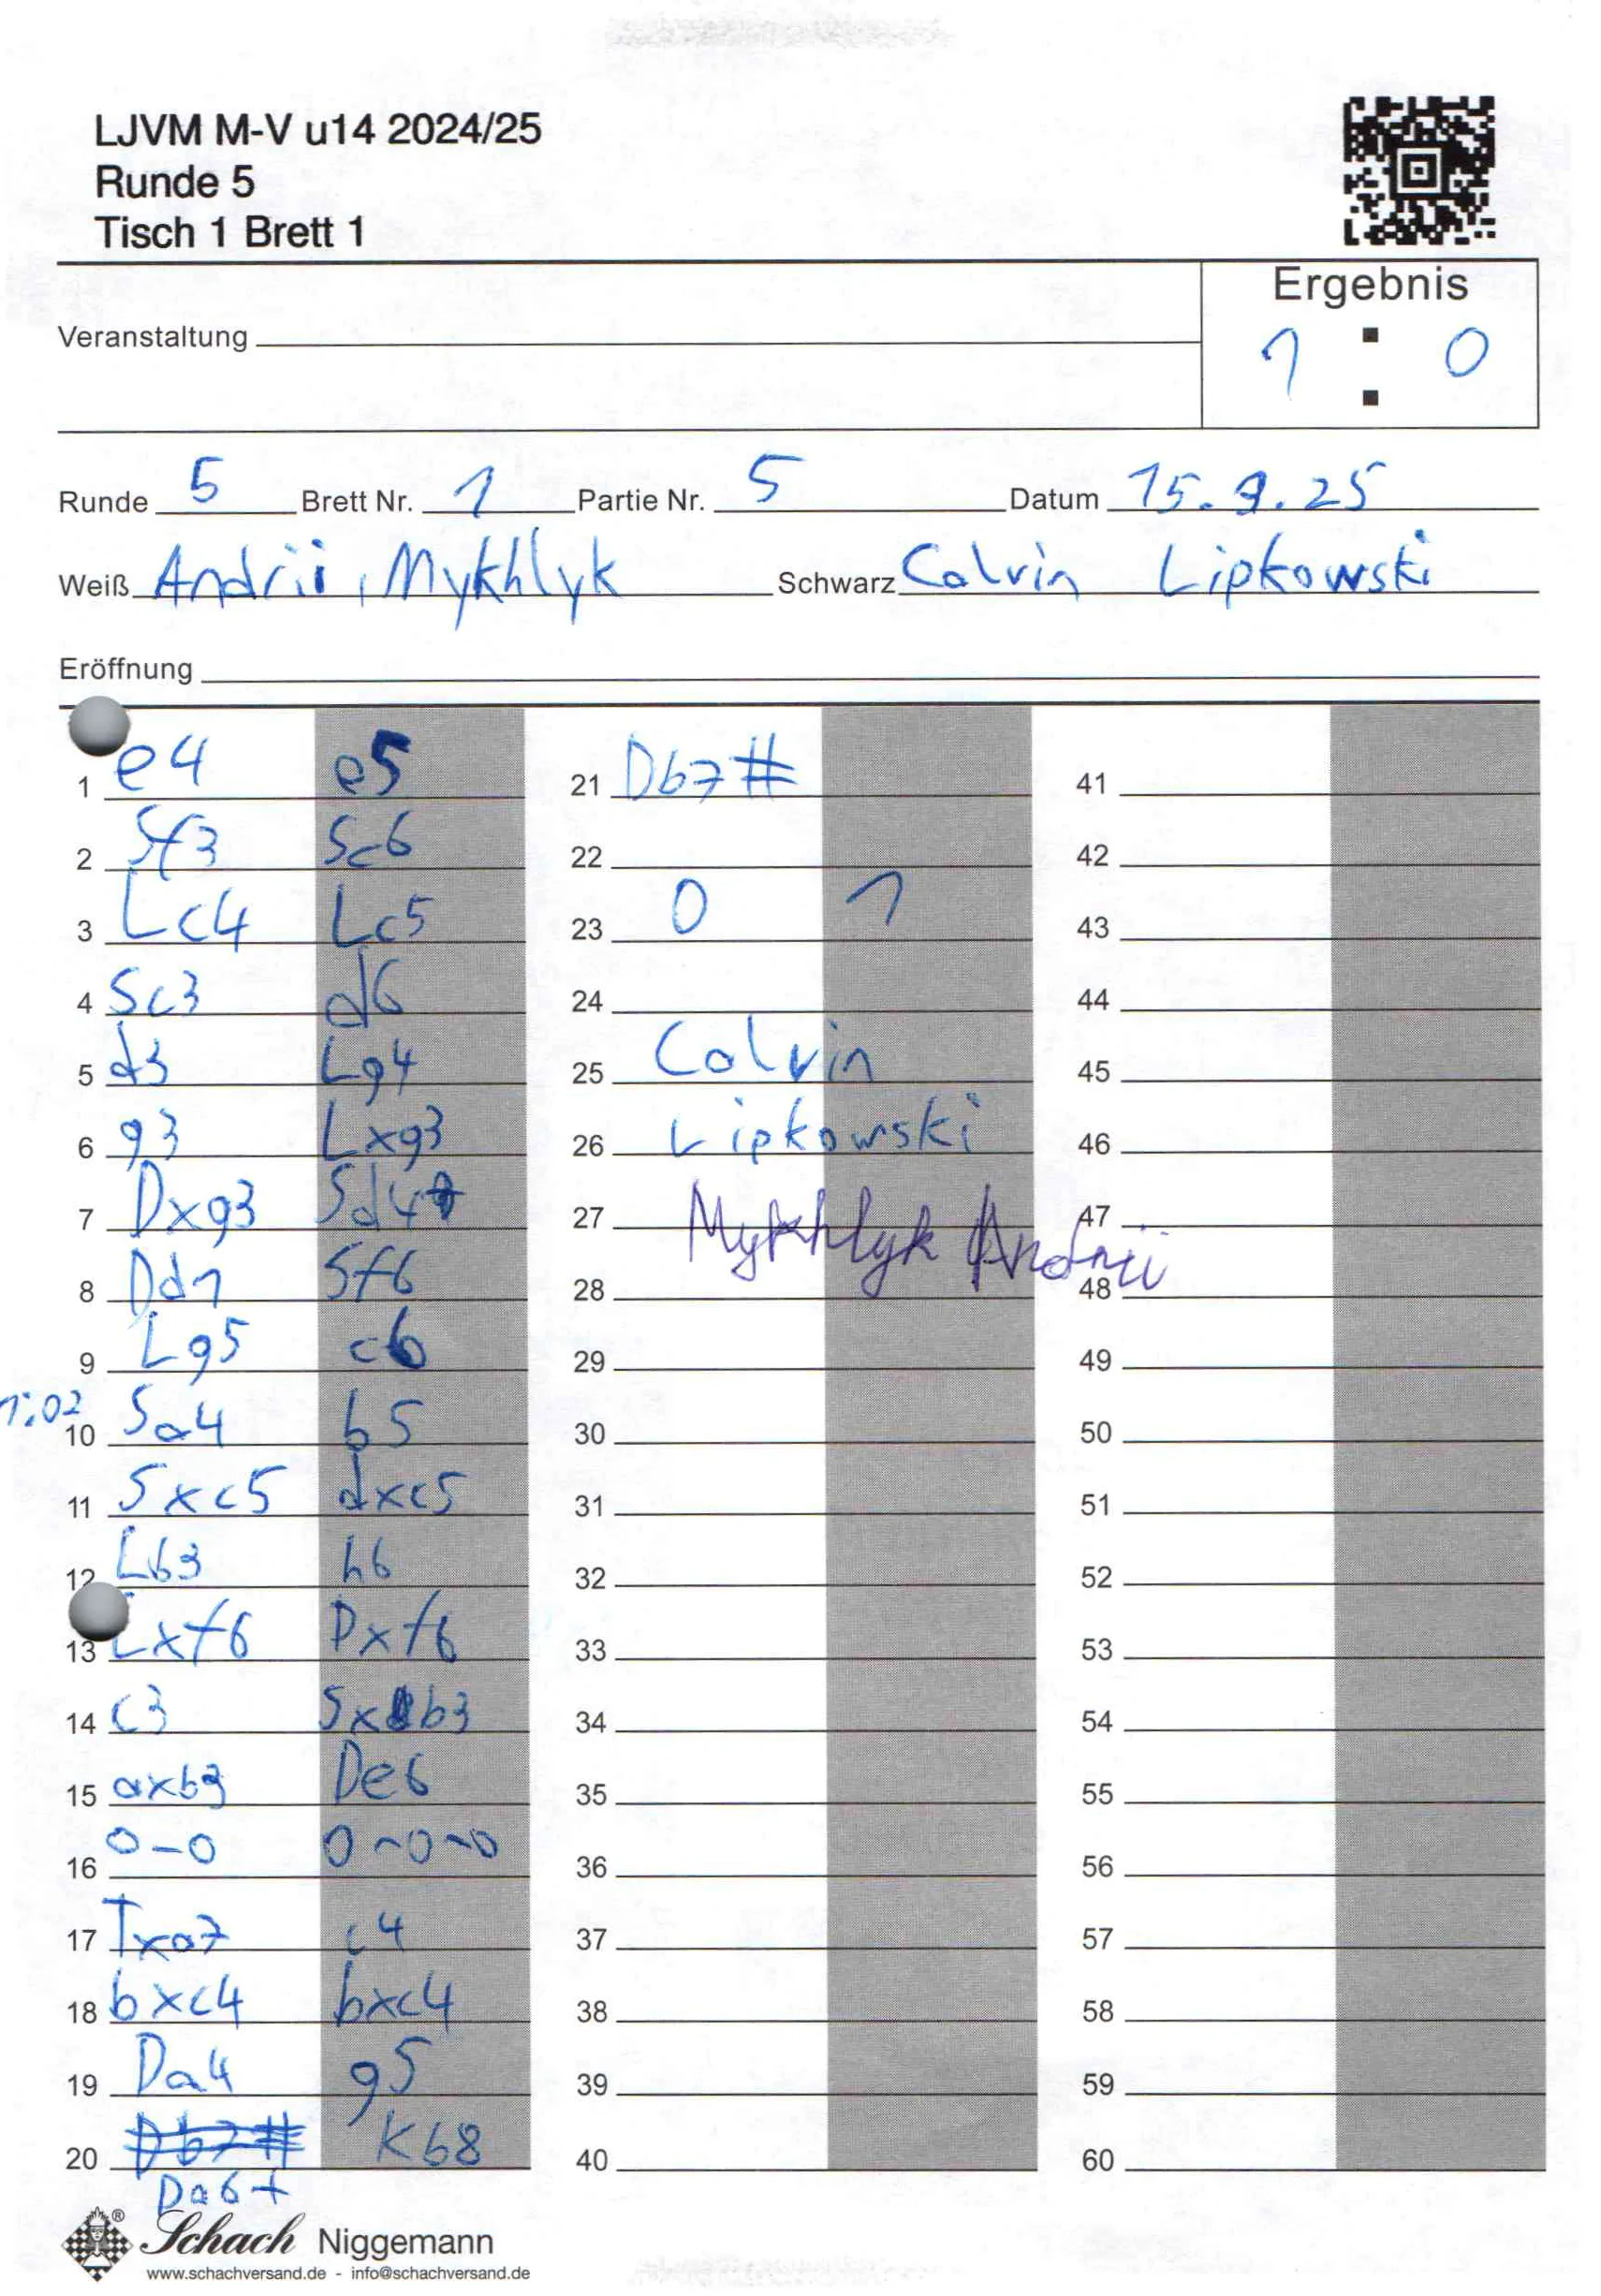 LJVM M-V u14 2024/25
Runde 5
Tisch 1 Brett 1
Ergebnis
Veranstaltung
1 : 0
Runde 5 Brett Nr. 1 Partie Nr. 5 Datum 15.3.25
Weiß Andrii, Mykhlyk Schwarz Calvin Lipkowski
Eröffnung
1 e4 e5
2 Sf3 Sc6
3 Lc4 Lc5
4 Sc3 d6
5 d3 Lg4
6 g3 Lxg3
7 Dxg3 Sd4
8 Dd1 Sf6
9 Lg5 c6
1:02
10 Sa4 b5
11 Sxc5 dxc5
12 Lb3 h6
13 Lxf6 Dxf6
14 c3 Sxb3
15 axb3 De6
16 0-0 0-0-0
17 Txa7 c4
18 bxc4 bxc4
19 Da4 g5
20 Db7# Kb8
Da6+
21 Db7#
22
23 0 1
24
25 Calvin
26 Lipkowski
27 Mykhlyk Andrii
28
29
30
31
32
33
34
35
36
37
38
39
40
41
42
43
44
45
46
47
48
49
50
51
52
53
54
55
56
57
58
59
60
Schach Niggemann
®
www.schachversand.de - info@schachversand.de